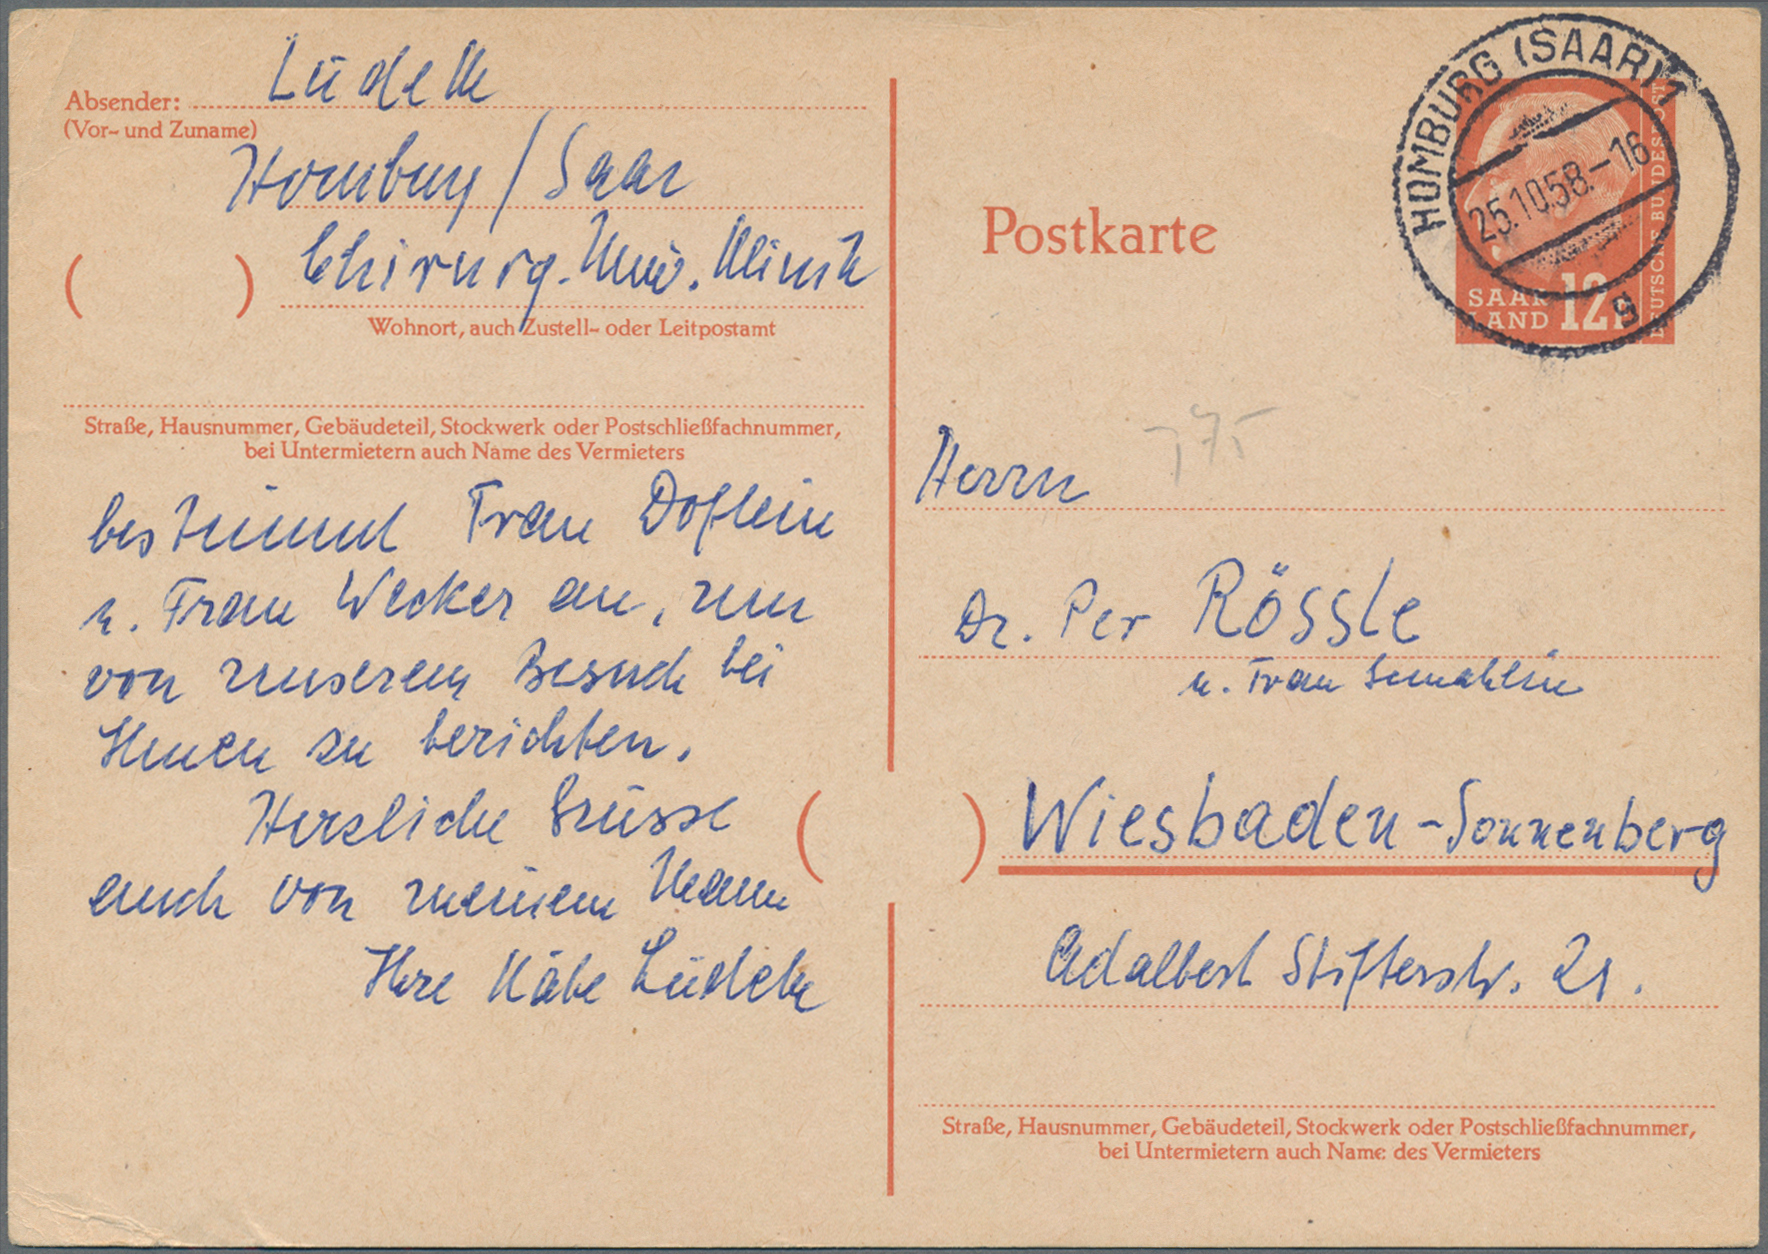 Absender: Lüdeke
(Vor- und Zuname)
Homburg / Saar
Chirurg. Univ. Klinik
( )
Wohnort, auch Zustell- oder Leitpostamt
Straße, Hausnummer, Gebäudeteil, Stockwerk oder Postschließfachnummer,
bei Untermietern auch Name des Vermieters
bestimmt Frau Doflein
u. Frau Wecker an, um
von unserem Besuch bei
Ihnen zu berichten.
Herzliche Grüsse
auch von meinem Mann
Ihre Käte Lüdeke
Postkarte
HOMBURG (SAAR) 1
25.10.58.-16
g
SAAR
LAND 12F
DEUTSCHE BUNDESPOST
Herrn
Dr. Per Rössle
u. Frau Gemahlin
( ) Wiesbaden-Sonnenberg
Adalbert Stifterstr. 21.
Straße, Hausnummer, Gebäudeteil, Stockwerk oder Postschließfachnummer,
bei Untermietern auch Name des Vermieters